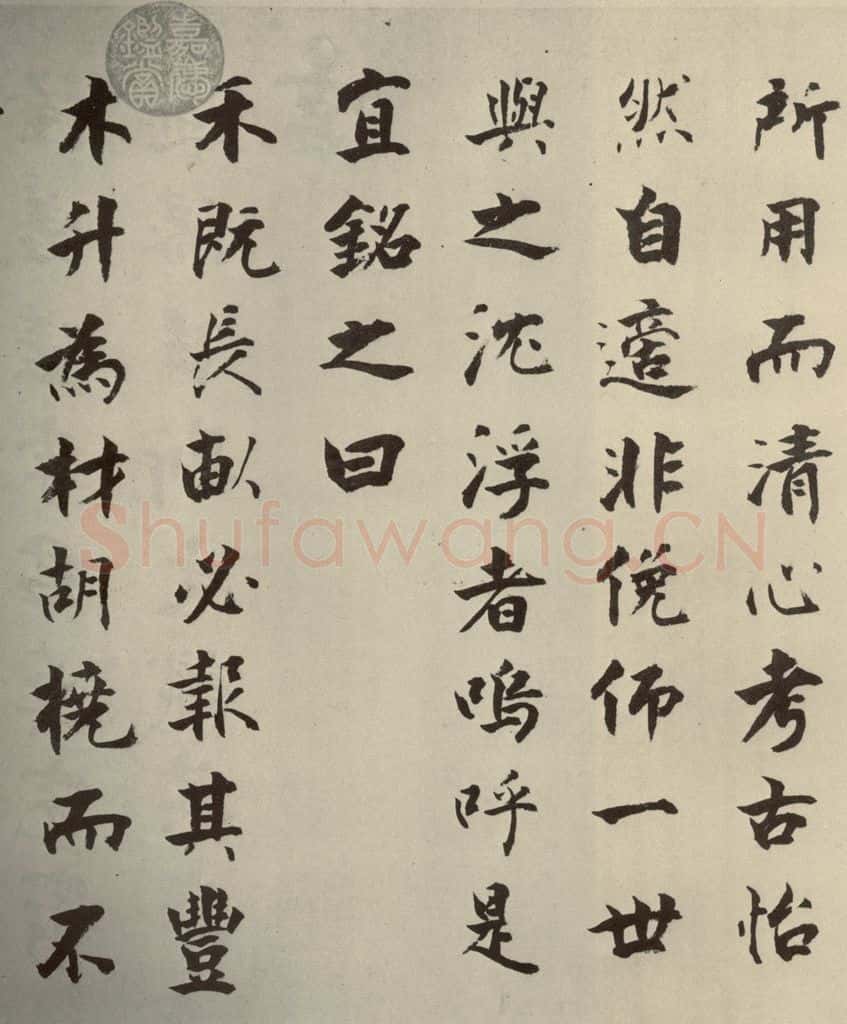 所用而清心考古怡
然自適非俛仰一世
與之沈浮者嗚呼是
宜銘之曰
禾既長畝必報其豐
木升為材胡橈而不
嘉慶鑑賞
Shufawang.CN